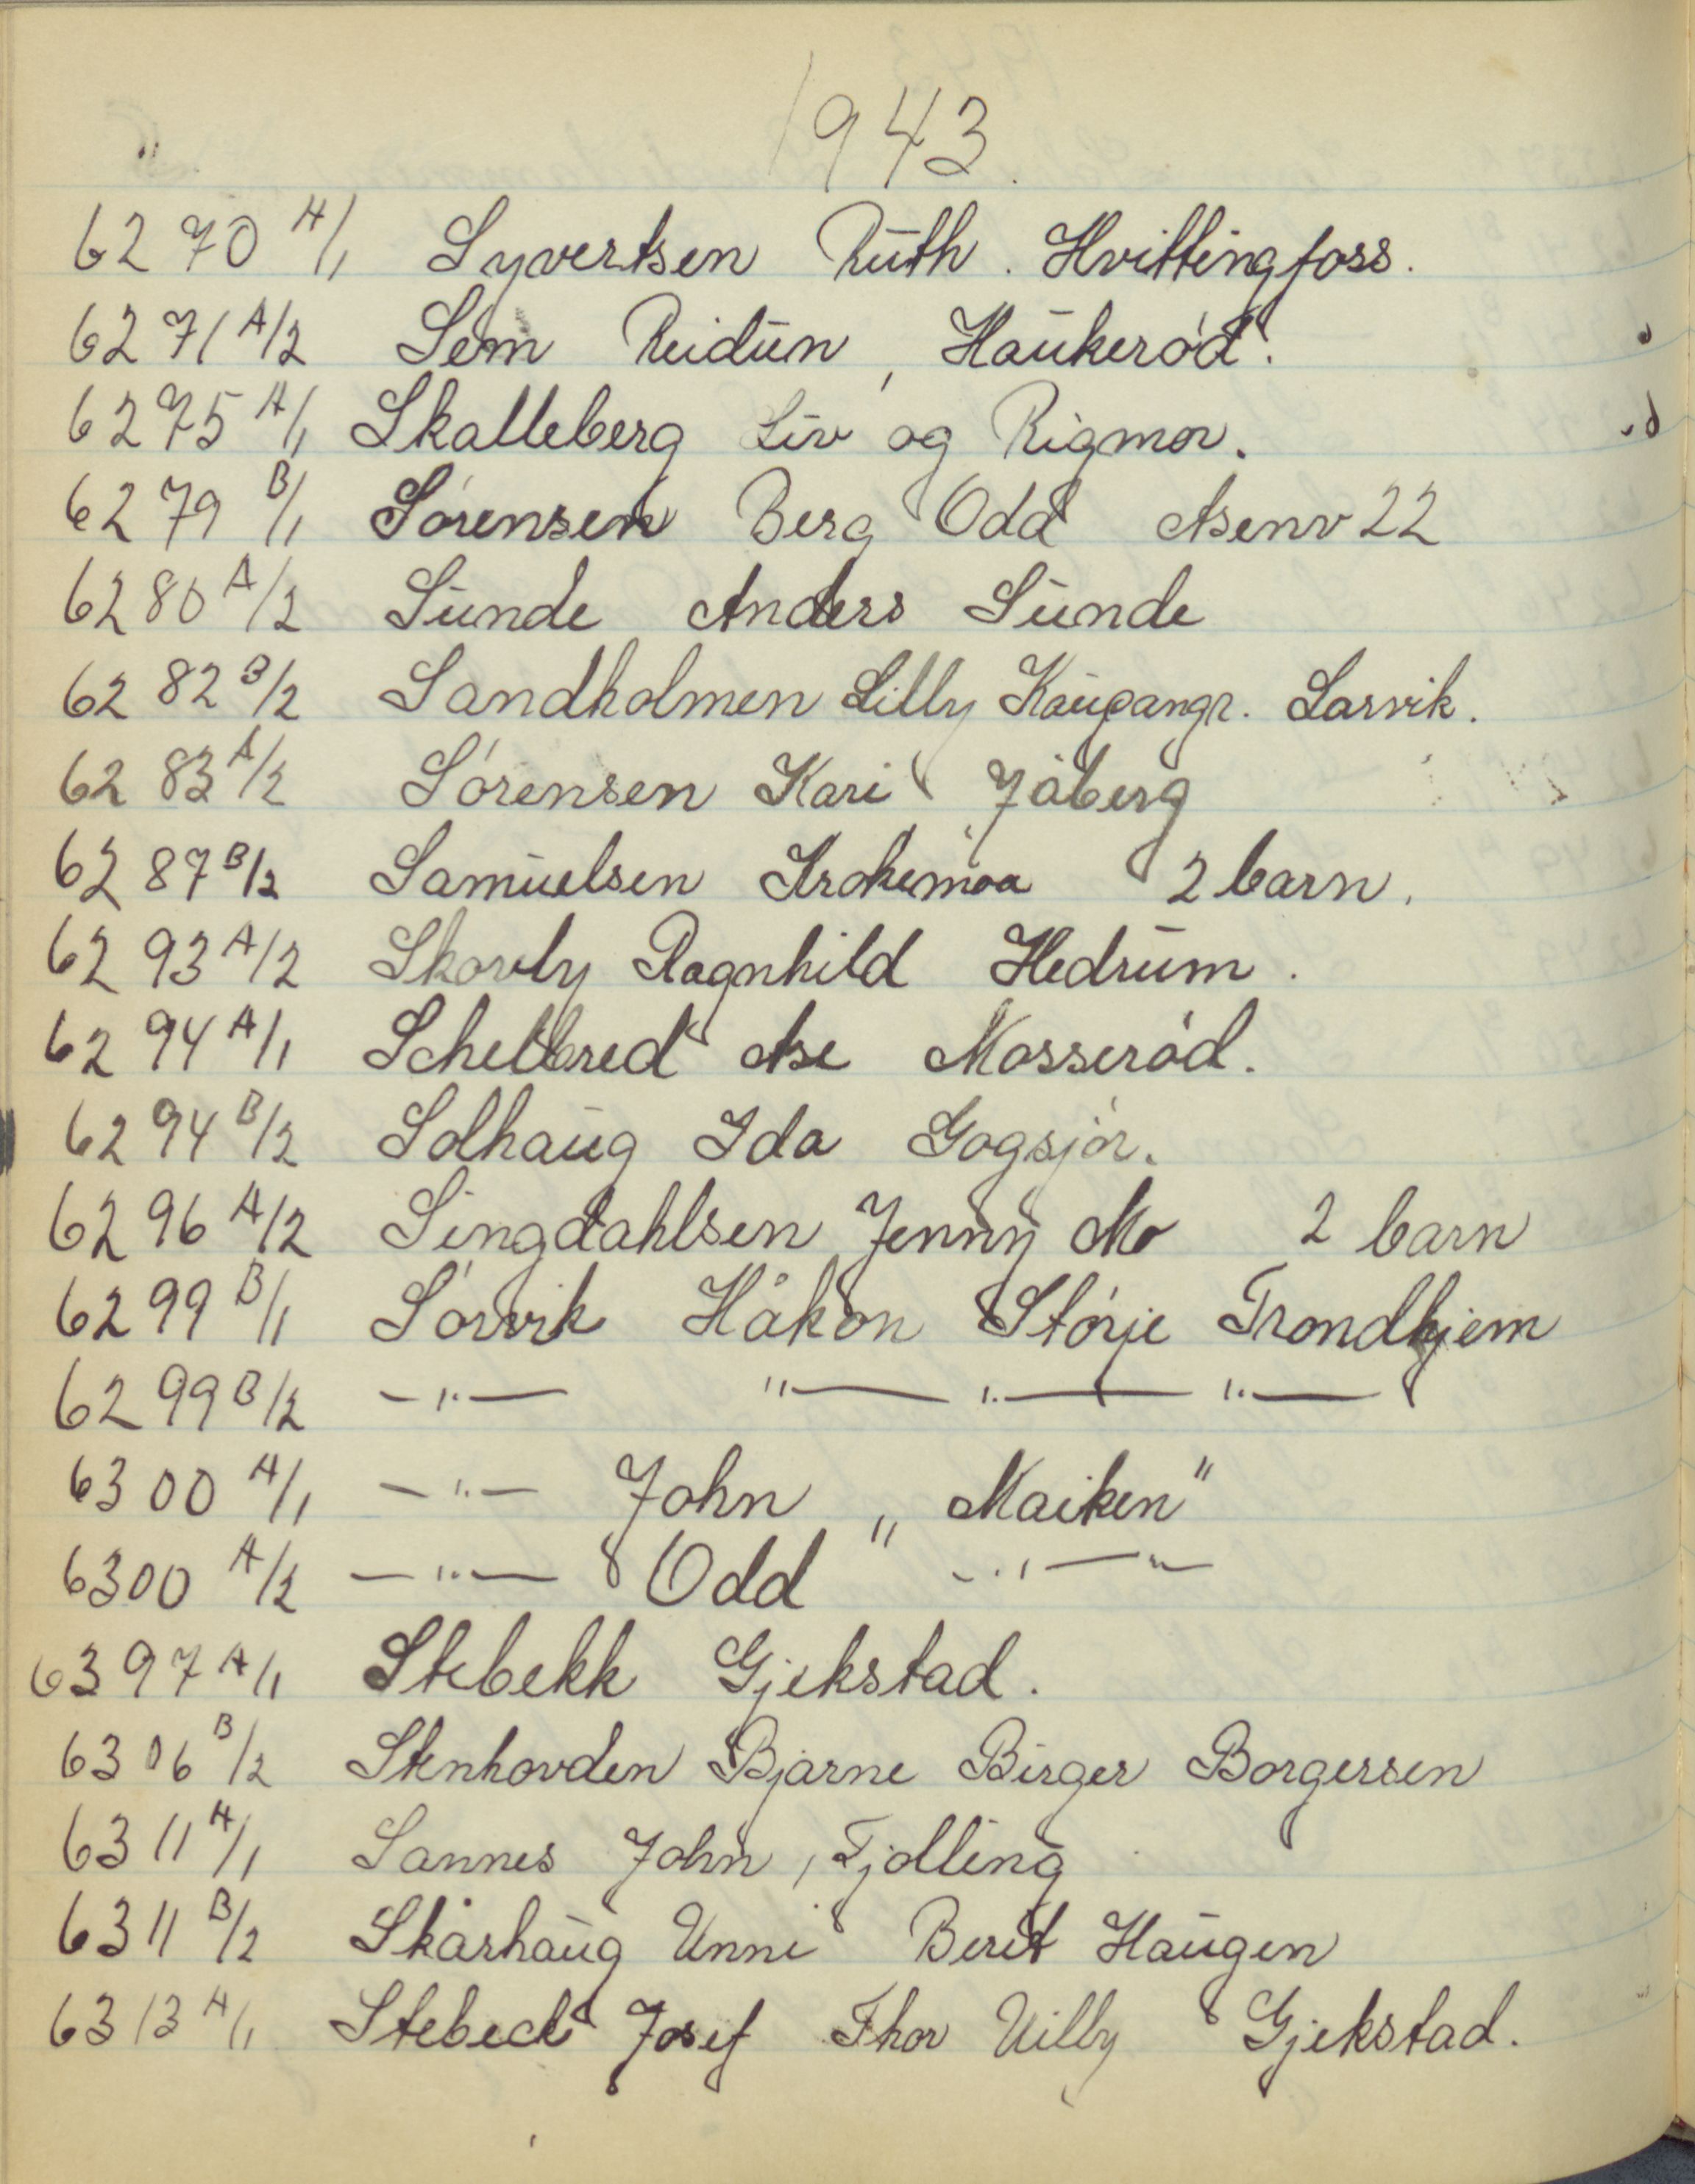 1943.
6270 A/1 Syvertsen Ruth. Hvittingfoss.
6271 A/2 Sem Reidun, Haukerød.
6275 A/1 Skalleberg Liv og Rigmor.
6279 B/1 Sørensen Berg Odd Asenv 22
6280 A/2 Sunde Anders Sunde
6282 B/2 Sandholmen Lilly Kaupangr. Larvik.
6283 A/2 Sørensen Kari Jåberg
6287 B/2 Samuelsen Krokemoa 2 barn.
6293 A/2 Skovly Ragnhild Hedrum.
6294 A/1 Schelbred Ase Mosserød.
6294 B/2 Solhaug Ida Gogsjør.
6296 A/2 Singdahlsen Jenny Mo 2 barn
6299 B/1 Sørvik Håkon Størje Trondhjem
6299 B/2 —"— "— "— "—
6300 A/1 —"— John „Maiken"
6300 A/2 —"— Odd —"—
6397 A/1 Stebekk Gjekstad.
6306 B/2 Stenhovden Bjarne Birger Borgersen
6311 A/1 Sannes John, Tjølling
6311 B/2 Skårhaug Unni Berit Haugen
6313 A/1 Stebeck Josef Thor Uilly Gjekstad.